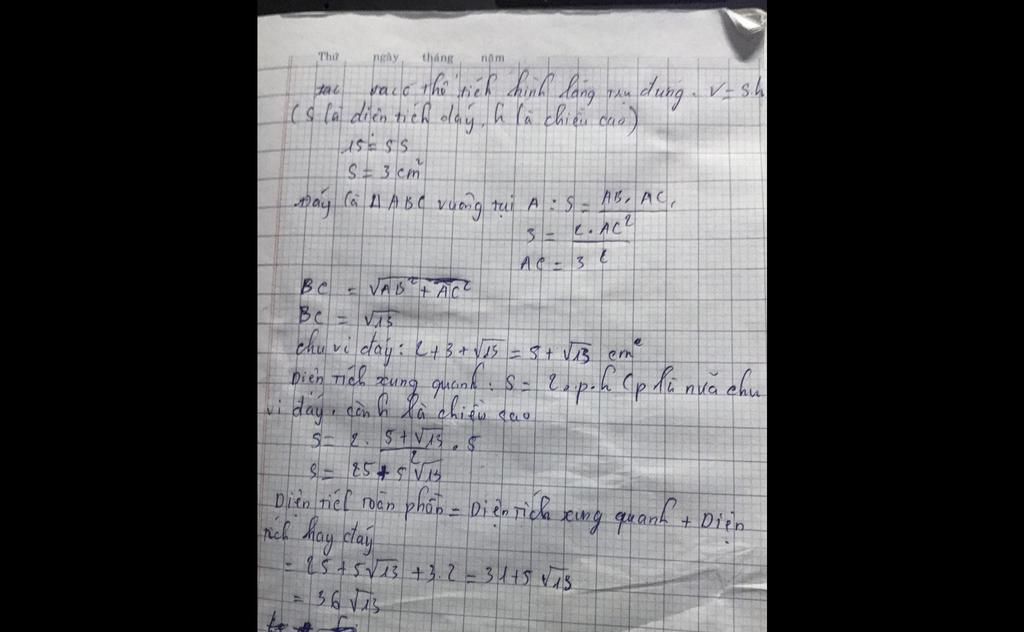 Thứ ngày tháng năm
ta có thể tích hình lăng trụ đứng. V = S.h
(S là diện tích đáy, h là chiều cao)
15 = 5S
S = 3 cm²
đáy là ΔABC vuông tại A : S = AB. AC
3 = 2. AC / 2
AC = 3
BC = √AB² + AC²
BC = √13
chu vi đáy: 2 + 3 + √13 = 5 + √13 cm
Diện tích xung quanh: S = 2.p.h (p là nửa chu
vi đáy, còn h là chiều cao
S = 2. 5 + √13 / 2 . 5
S = 25 + 5√13
Diện tích toàn phần = Diện tích xung quanh + Diện
tích hay đáy
= 25 + 5√13 + 3.2 = 31 + 5√13
= 36√13